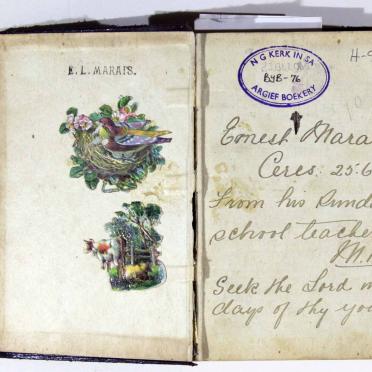 E. L. MARAIS.
N G KERK IN SA
BYB-76
ARGIEF BOEKERY
Ernest Mara
Ceres. 25.6
From his Sunda
school teache
M.
Seek the Lord
days of thy you